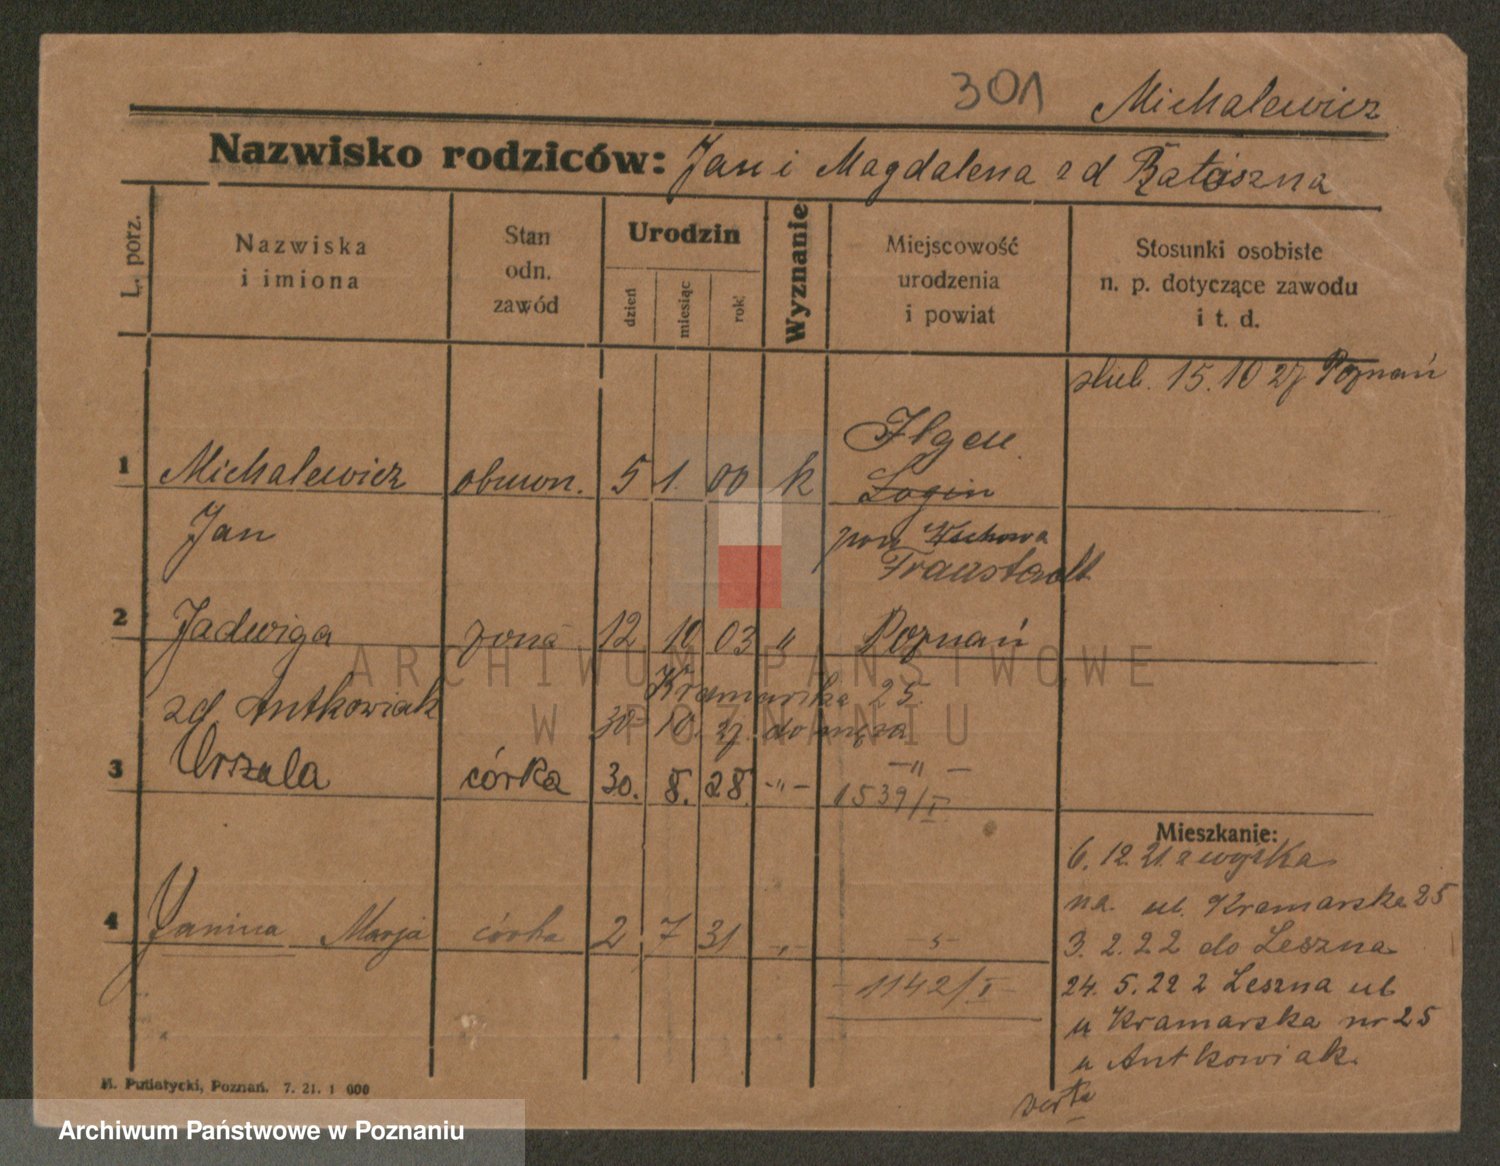 301 Michalewicz
Nazwisko rodziców: Jan i Magdalena zd Ratajszna
L. porz.
Nazwiska
i imiona
Stan
odn.
zawód
Urodzin
dzień
miesiąc
rok
Wyznanie
Miejscowość
urodzenia
i powiat
Stosunki osobiste
n. p. dotyczące zawodu
i t. d.
slub. 15.10 27 Poznań
Ilgen
1 Michalewicz obuwn. 5 1. 00 k Login
Jan pow Wschowa
Fraustadt
2 Jadwiga żona 12 10 03 " Poznań
zd Antkowiak Kramarska 25.
30 10. 27. do męża
3 Urszula córka 30. 8. 28. -"- -"-
1539/I
4 Janina Marja córka 2 7 31 -"- -"-
1142/I
Mieszkanie:
6. 12. 21 z wojska
na ul. Kramarska 25
3. 2. 22 do Leszna
24. 5. 22 z Leszna ul
u Kramarska nr 25
u Antkowiak.
verte
M. Putiatycki, Poznań. 7. 21. 1 000
ARCHIWUM PAŃSTWOWE
W POZNANIU
Archiwum Państwowe w Poznaniu